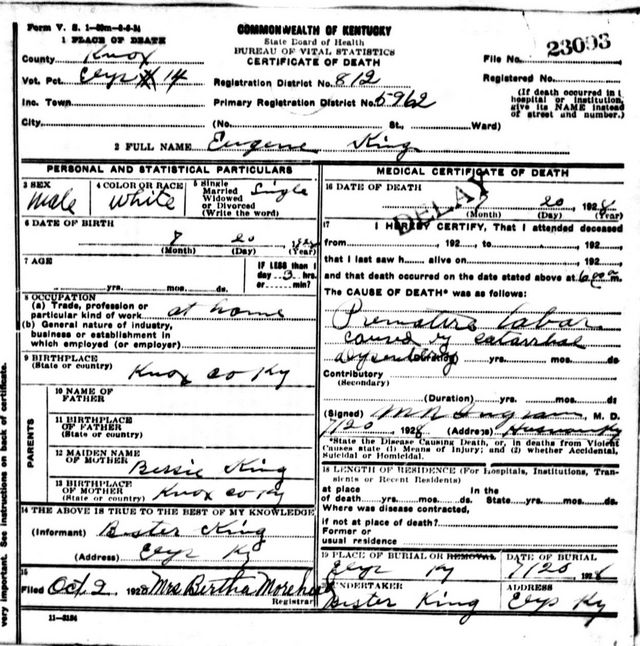 Form V. S. 1-
COMMONWEALTH OF KENTUCKY
State Board of Health
BUREAU OF VITAL STATISTICS
CERTIFICATE OF DEATH
1 PLACE OF DEATH
County Knox
File No. 23093
Vot. Pct. 14
Registration District No. 812
Registered No.
Inc. Town
Primary Registration District No. 5962
(If death occurred in a hospital or institution, give its NAME instead of street and number.)
City (No. St., Ward)
2 FULL NAME Eugene King
PERSONAL AND STATISTICAL PARTICULARS
3 SEX Male
4 COLOR OR RACE White
5 Single Married Widowed or Divorced (Write the word) Single
6 DATE OF BIRTH
7 20
(Month) (Day) (Year)
7 AGE
yrs. mos. ds.
IF LESS than 1 day 3 hrs. or min?
8 OCCUPATION
(a) Trade, profession or particular kind of work at home
(b) General nature of industry, business or establishment in which employed (or employer)
9 BIRTHPLACE (State or country) Knox Co Ky
PARENTS
10 NAME OF FATHER
11 BIRTHPLACE OF FATHER (State or country)
12 MAIDEN NAME OF MOTHER Bessie King
13 BIRTHPLACE OF MOTHER (State or country) Knox Co Ky
14 THE ABOVE IS TRUE TO THE BEST OF MY KNOWLEDGE
(Informant) Bister King
(Address) Elys Ky
15
Filed Oct 2 1928 Mrs Bertha
Registrar
11-3184
MEDICAL CERTIFICATE OF DEATH
16 DATE OF DEATH
DELAY
7 20 1928
(Month) (Day) (Year)
17 I HEREBY CERTIFY, That I attended deceased
from 192 , to 192 ,
that I last saw h alive on , 192 ,
and that death occurred on the date stated above at m.
The CAUSE OF DEATH* was as follows:
Premature labor
caused by catarrhal
dysentery
(Duration) yrs. mos. ds.
Contributory
(Secondary)
(Duration) yrs. mos. ds.
(Signed) Ingram, M. D.
7/20 1928 (Address)
*State the Disease Causing Death, or, in deaths from Violent Causes state (1) Means of Injury; and (2) whether Accidental, Suicidal or Homicidal.
18 LENGTH OF RESIDENCE (For Hospitals, Institutions, Transients or Recent Residents)
at place of death yrs. mos. ds. In the State yrs. mos. ds.
Where was disease contracted,
if not at place of death?
Former or usual residence
19 PLACE OF BURIAL OR REMOVAL
Elys Ky
DATE OF BURIAL
7/20 1928
UNDERTAKER
Bister King
ADDRESS
Elys Ky
very important. See instructions on back of certificate.